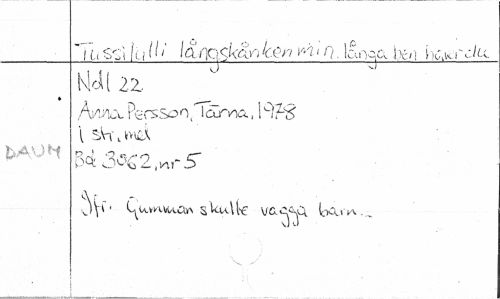 Tussilulli långskånken min. långa ben haver du
Ndl 22
Anna Persson, Tärna, 1978
1 str, mel
DAUM
Bd 3062, nr 5
Jfr. Gumman skulle vagga barn...